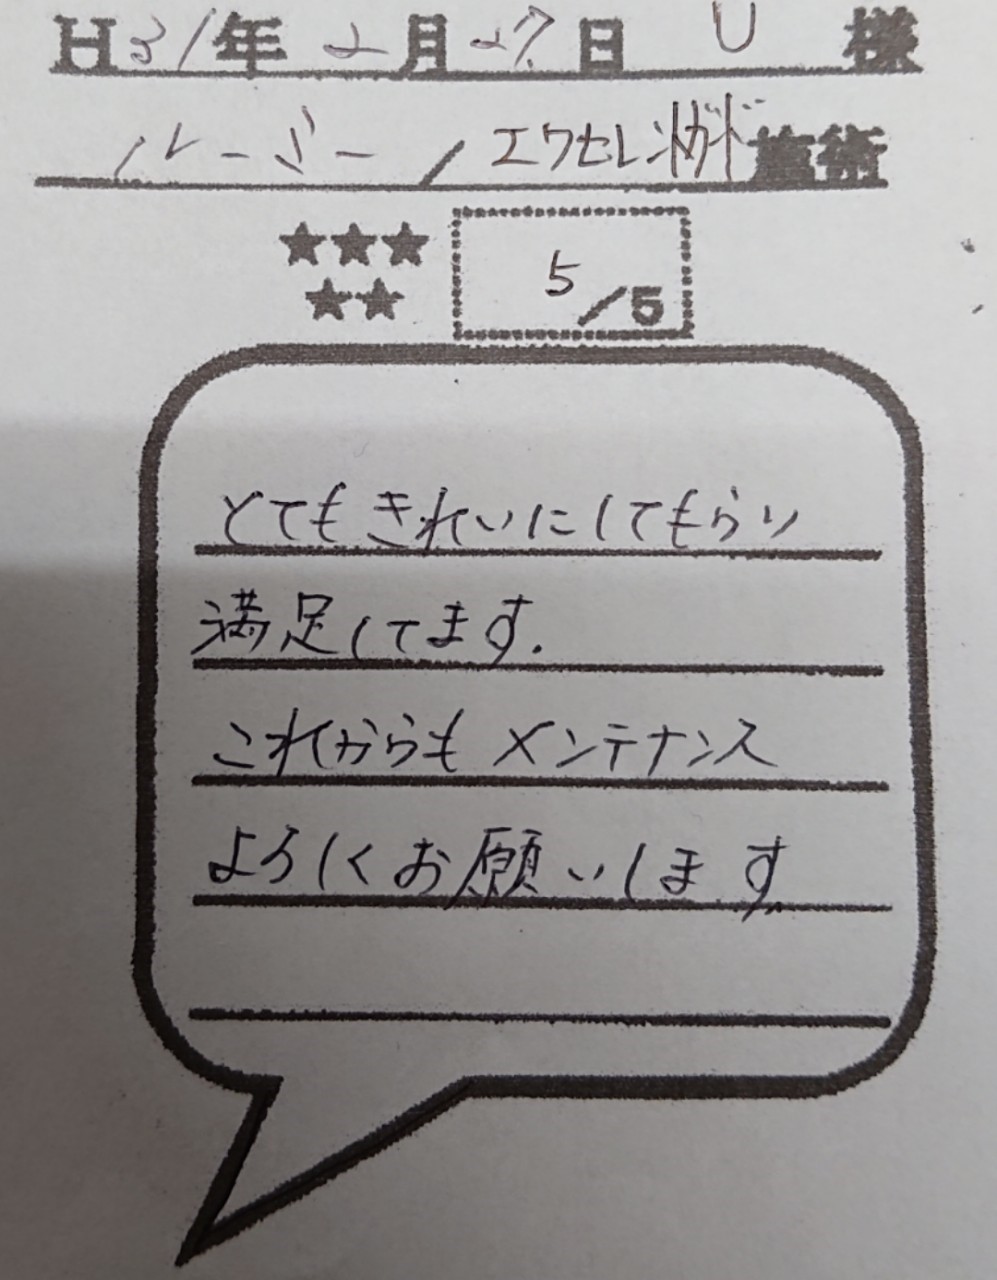 H31年2月27日 U 様
ルーミー/エクセレントガード施術
★★★
★★
5/5
とてもきれいにしてもらい
満足してます.
これからもメンテナンス
よろしくお願いします